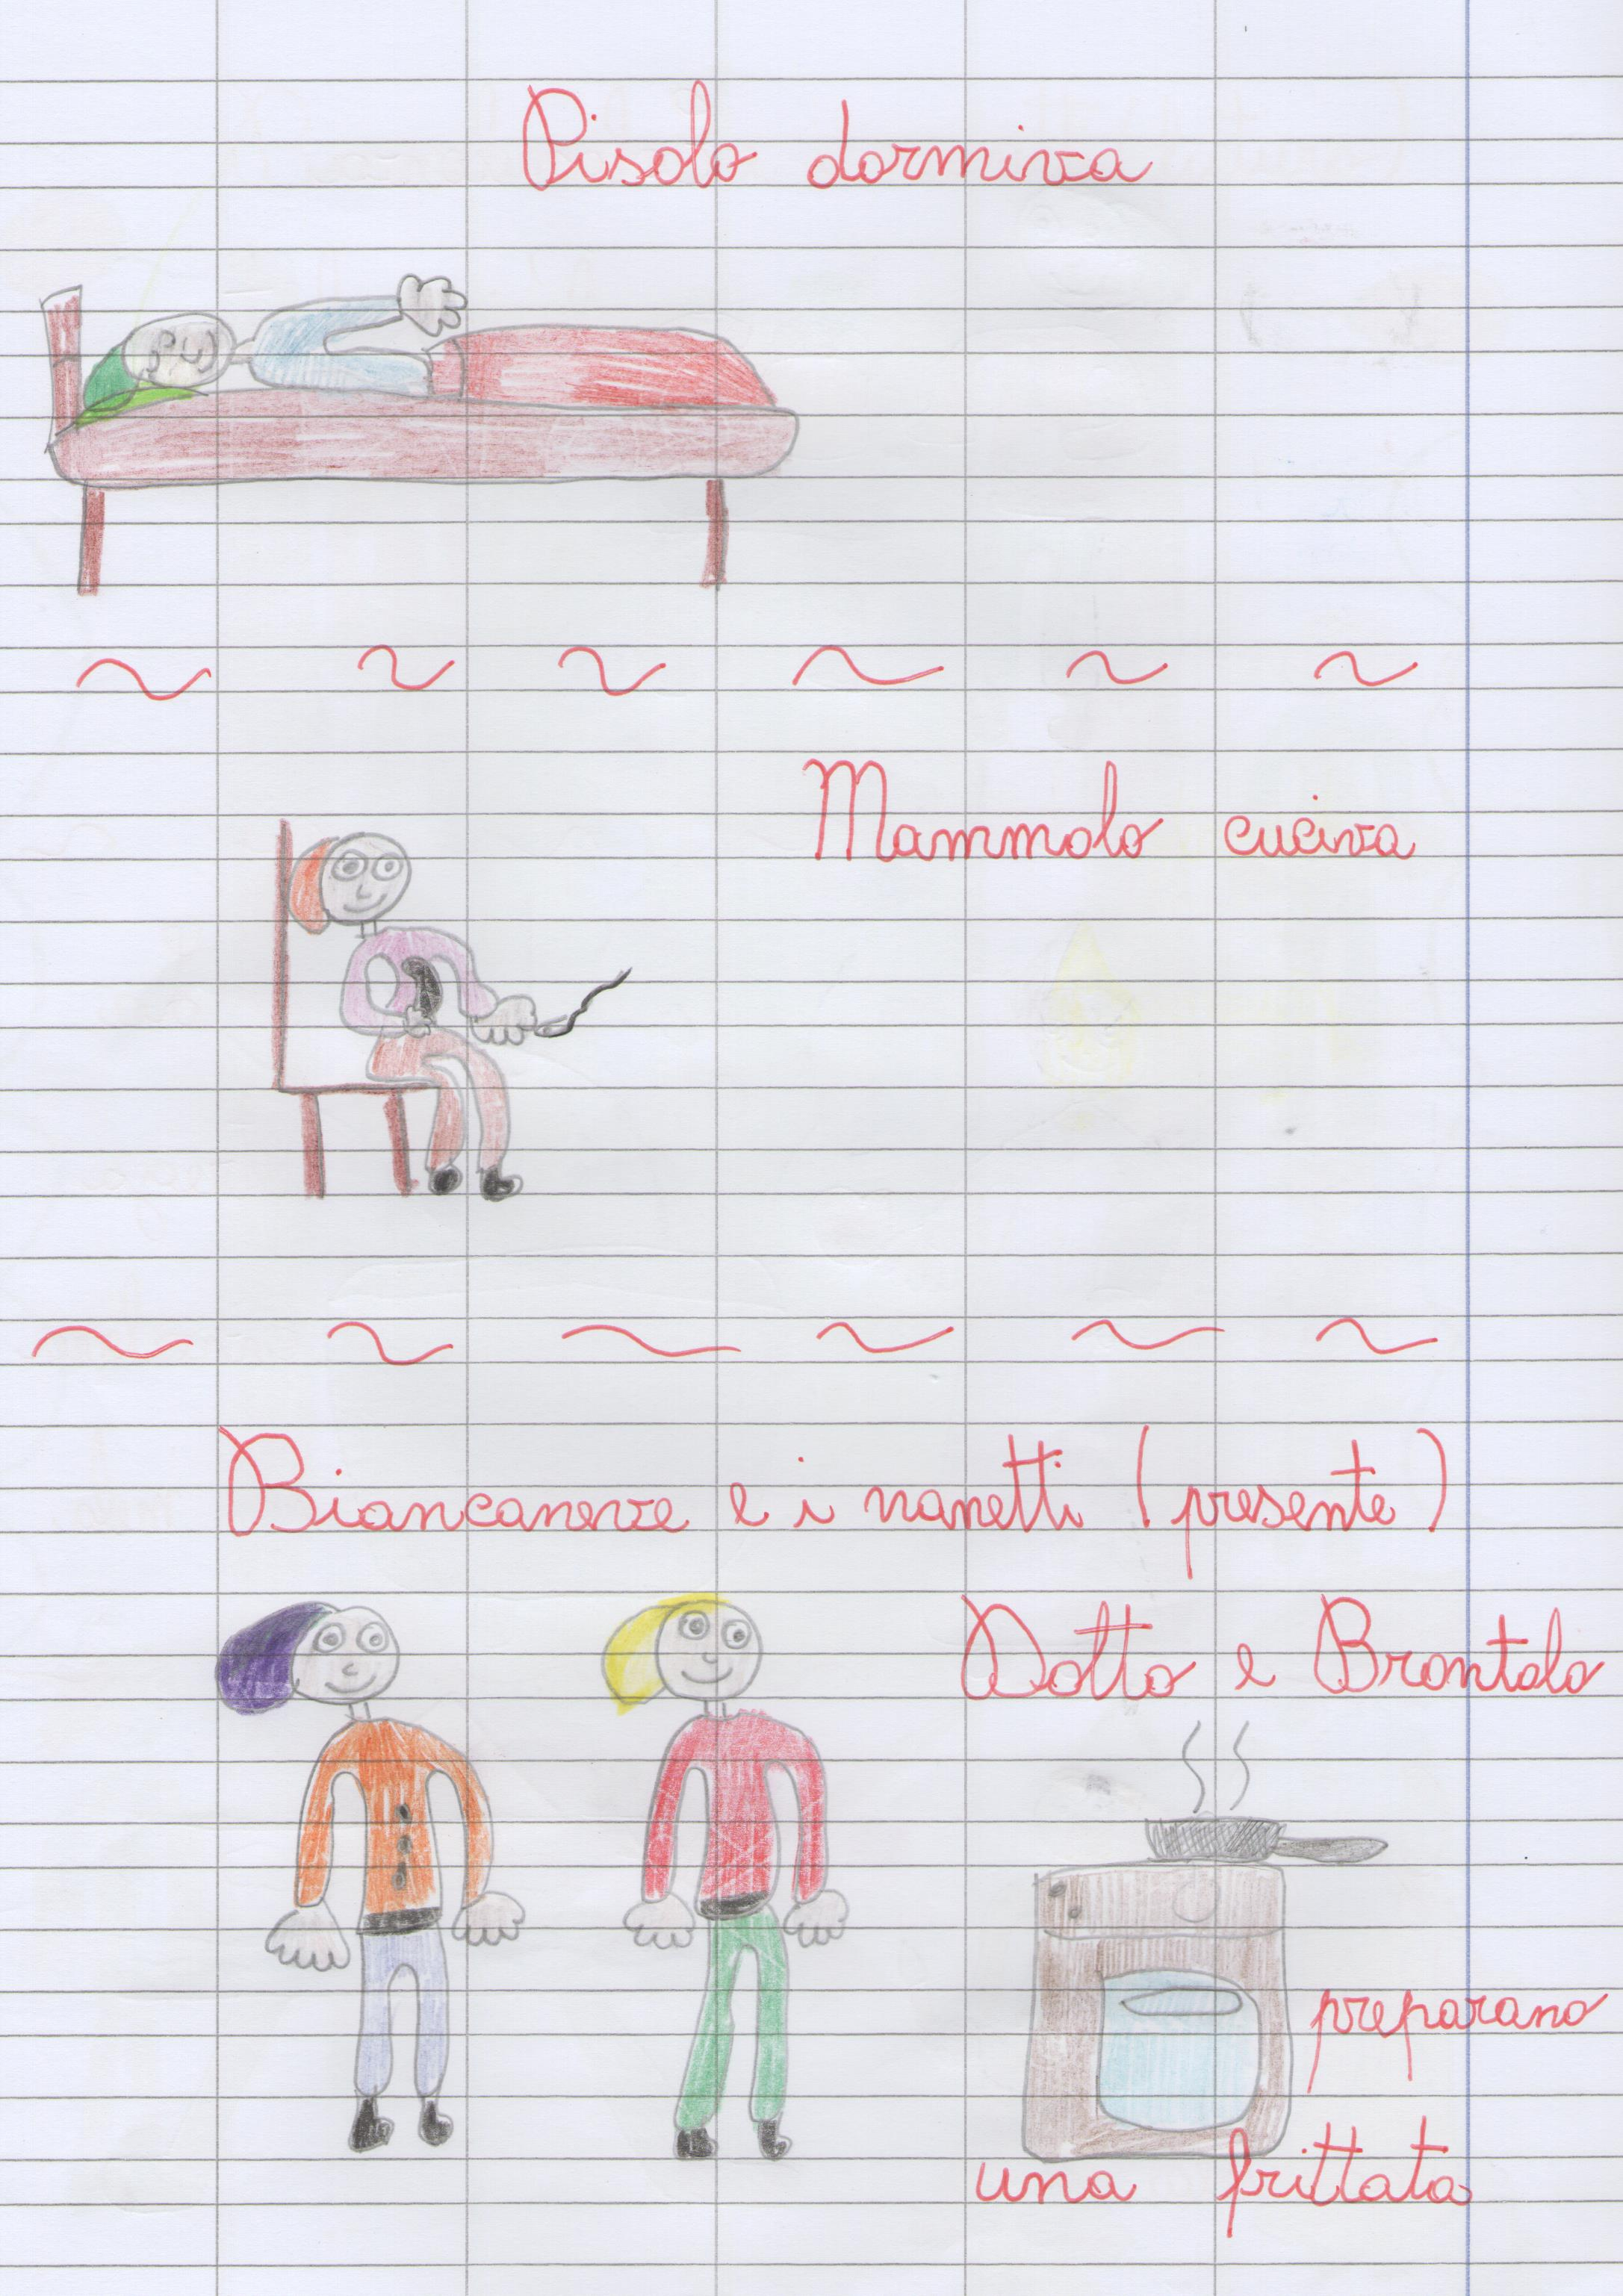 Pisolo dormiva
Mammolo cuciva
Biancaneve e i nanetti (presente)
Dotto e Brontolo
preparano
una frittata